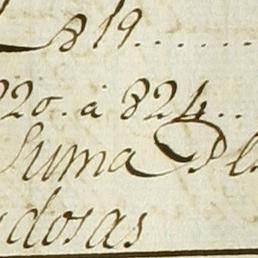 819......
220. à 824..
Suma
dosas